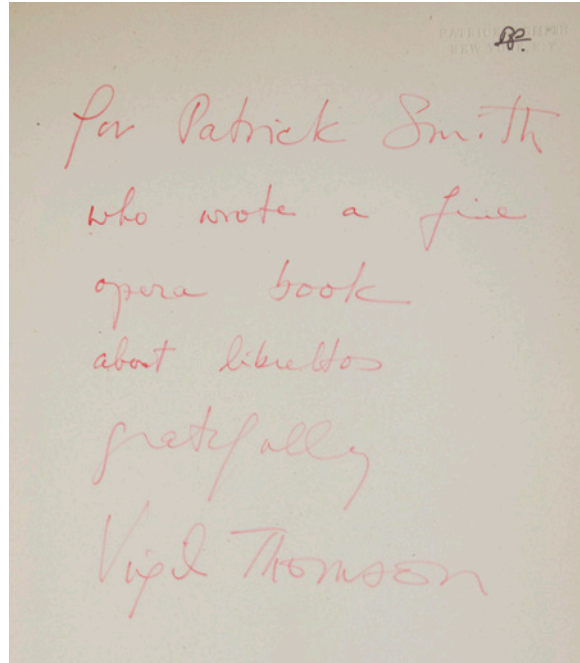 NEW Y
for Patrick Smith
who wrote a fine
opera book
about librettos
gratefully
Virgil Thomson